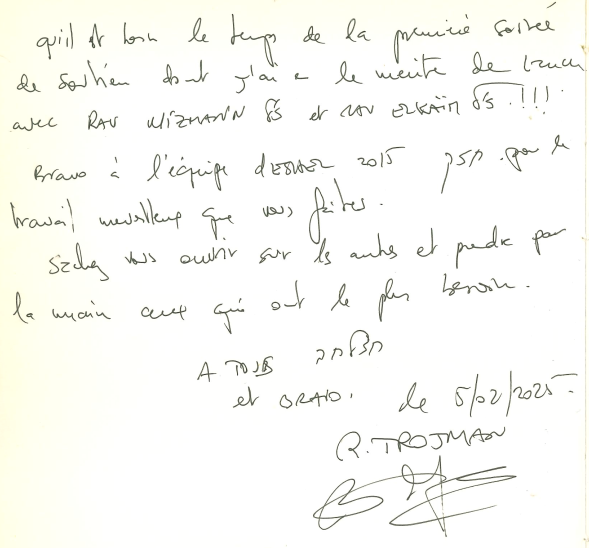 qu'il est loin le temps de la première soirée
de soutien dont j'ai le mérite de
avec RAV WIZMANN et RAV ELKAÏM !!!
Bravo à l'équipe d' 2015 pour le
travail merveilleux que vous faites.
Sachez vous ouvrir sur les autres et prendre par
la main ceux qui ont le plus besoin.
A TOUS הצלחה
et BRAVO. le 5/02/2025.
R. TROJMAN